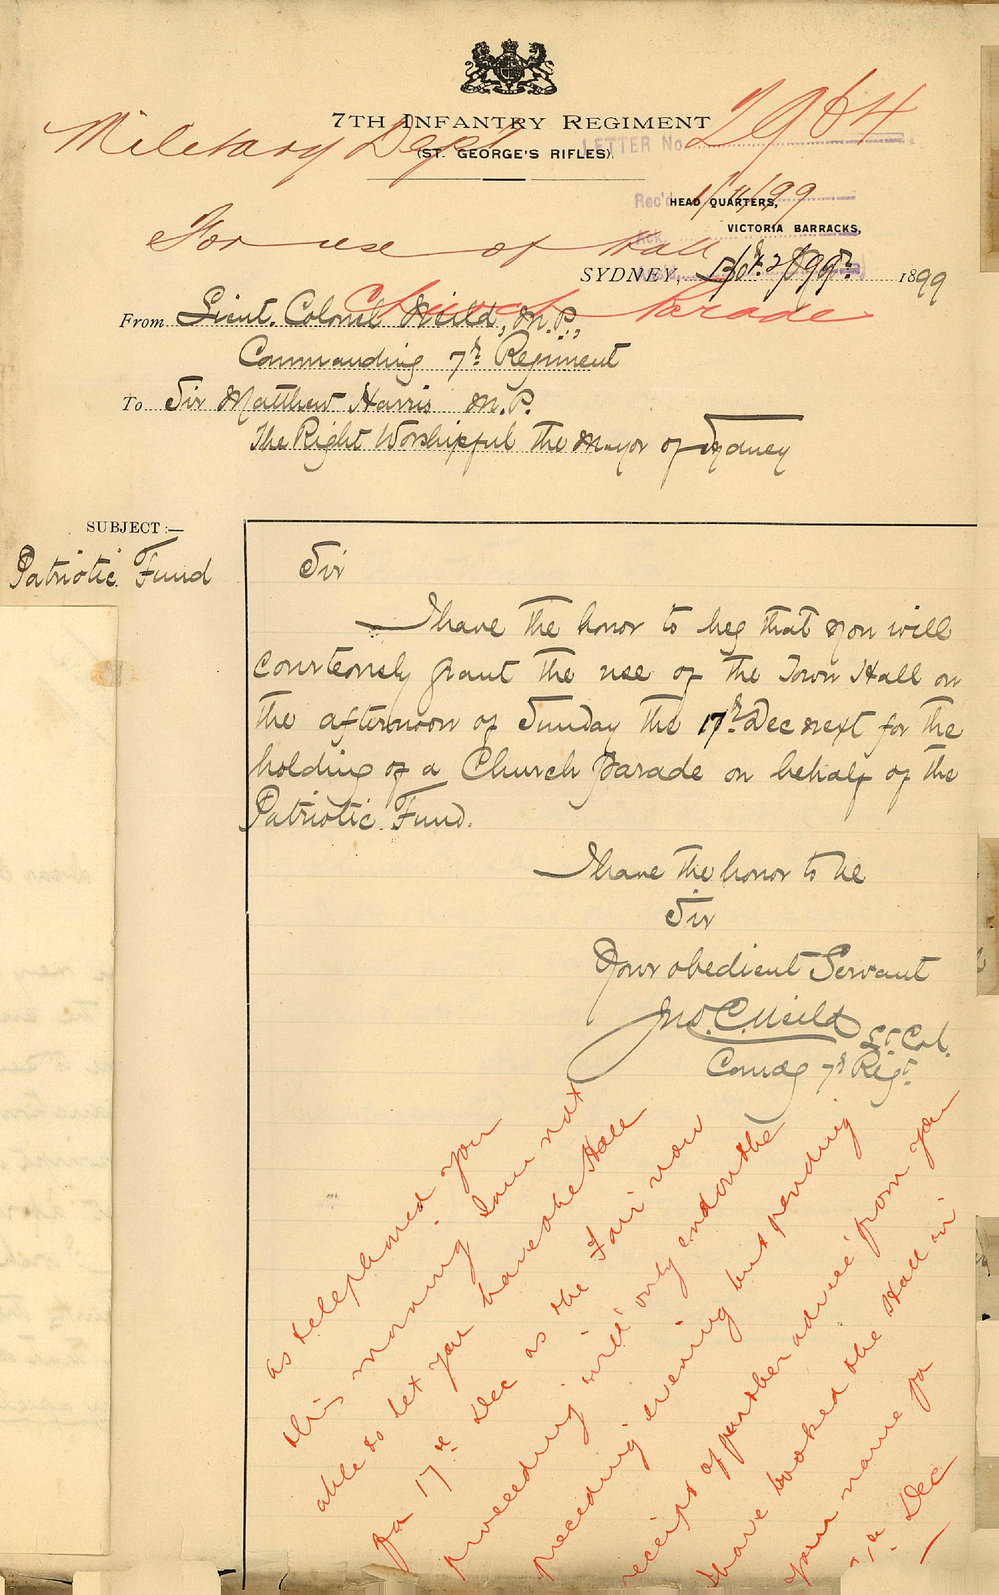 7TH INFANTRY REGIMENT
(ST. GEORGE'S RIFLES).
Military Dept
LETTER No. 2964
Rec'd 1/11/99
HEAD QUARTERS,
VICTORIA BARRACKS,
Ack.
For use of Hall
Church Parade
SYDNEY, 1899
From Lieut. Colonel Neild, M.P.,
Commanding 7th Regiment
To Sir Matthew Harris M.P.
The Right Worshipful the Mayor of Sydney
SUBJECT:—
Patriotic Fund
Sir
I have the honor to beg that you will
courteously grant the use of the Town Hall on
the afternoon of Sunday the 17th Dec next for the
holding of a Church Parade on behalf of the
Patriotic Fund.
I have the honor to be
Sir
Your obedient Servant
Jno. C. Neild Lt Col.
Comdg 7th Regt.
as telephoned you
this morning I am not
able to let you have the Hall
for 17th Dec as the Fair now
proceeding will only end on the
preceding evening but pending
receipt of further advice from you
I have booked the Hall in
your name for
Dec